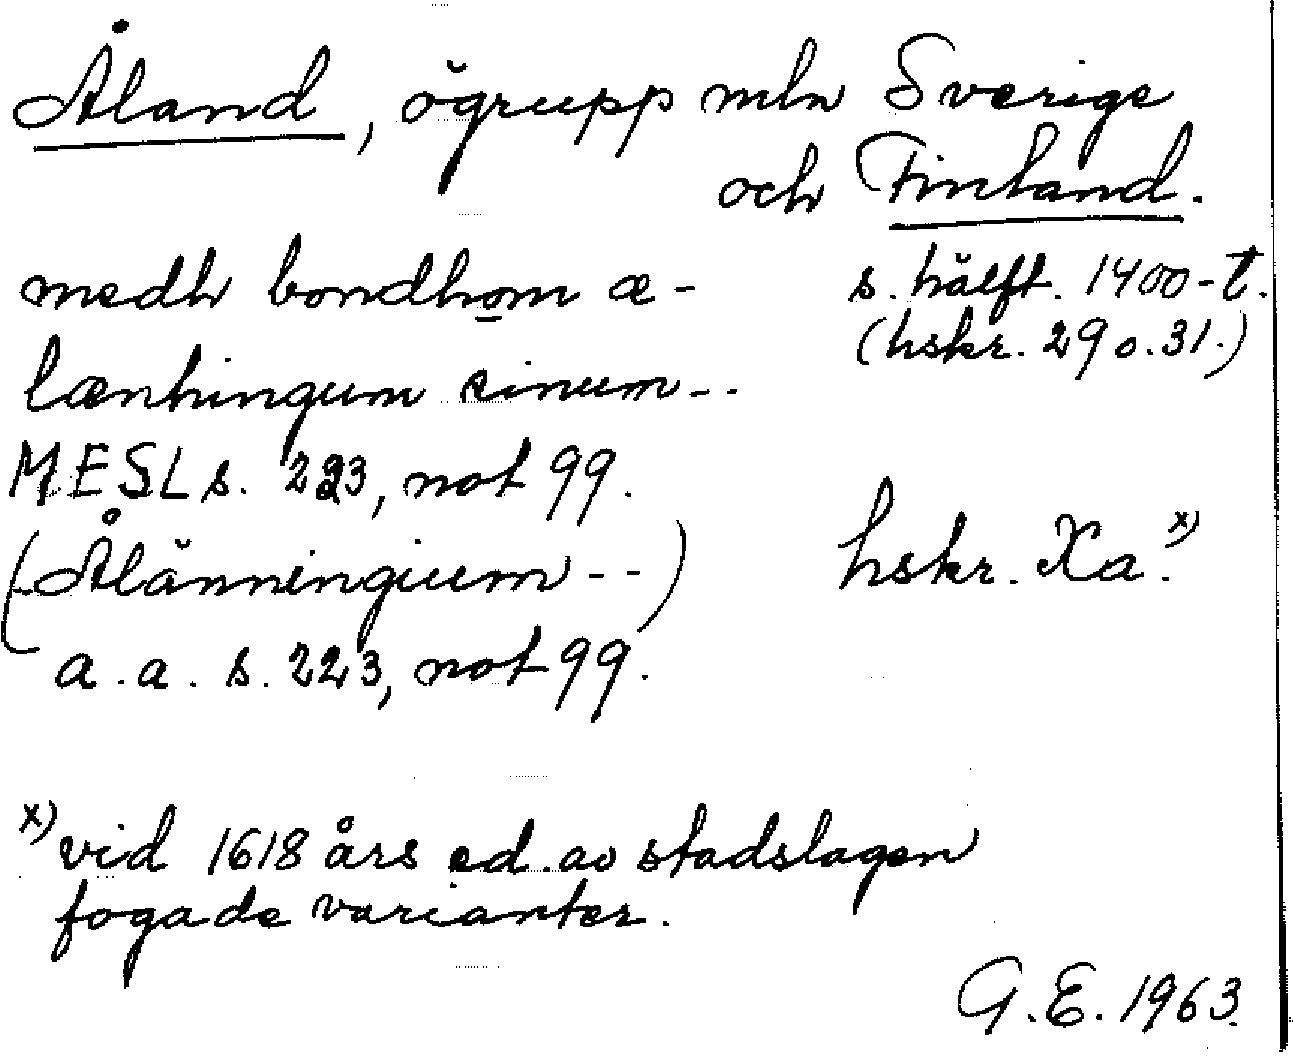 Åland, ögrupp mln Sverige
och Finland.
medh bondhom æ- s. hälft. 1400-t.
(hskr. 29 o. 31.)
lænhingum sinum--
MESL s. 223, not 99.
(Ålänningium--) hskr. Xa.x)
a. a. s. 223, not 99.
x) vid 1618 års ed. av stadslagen
fogade varianter.
G.E. 1963.